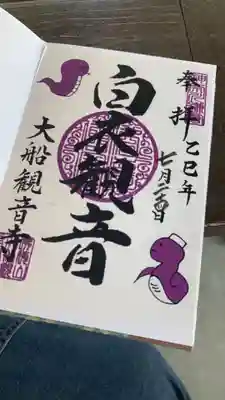 奉拝
乙巳年
七月二
白衣観音
大船観音寺